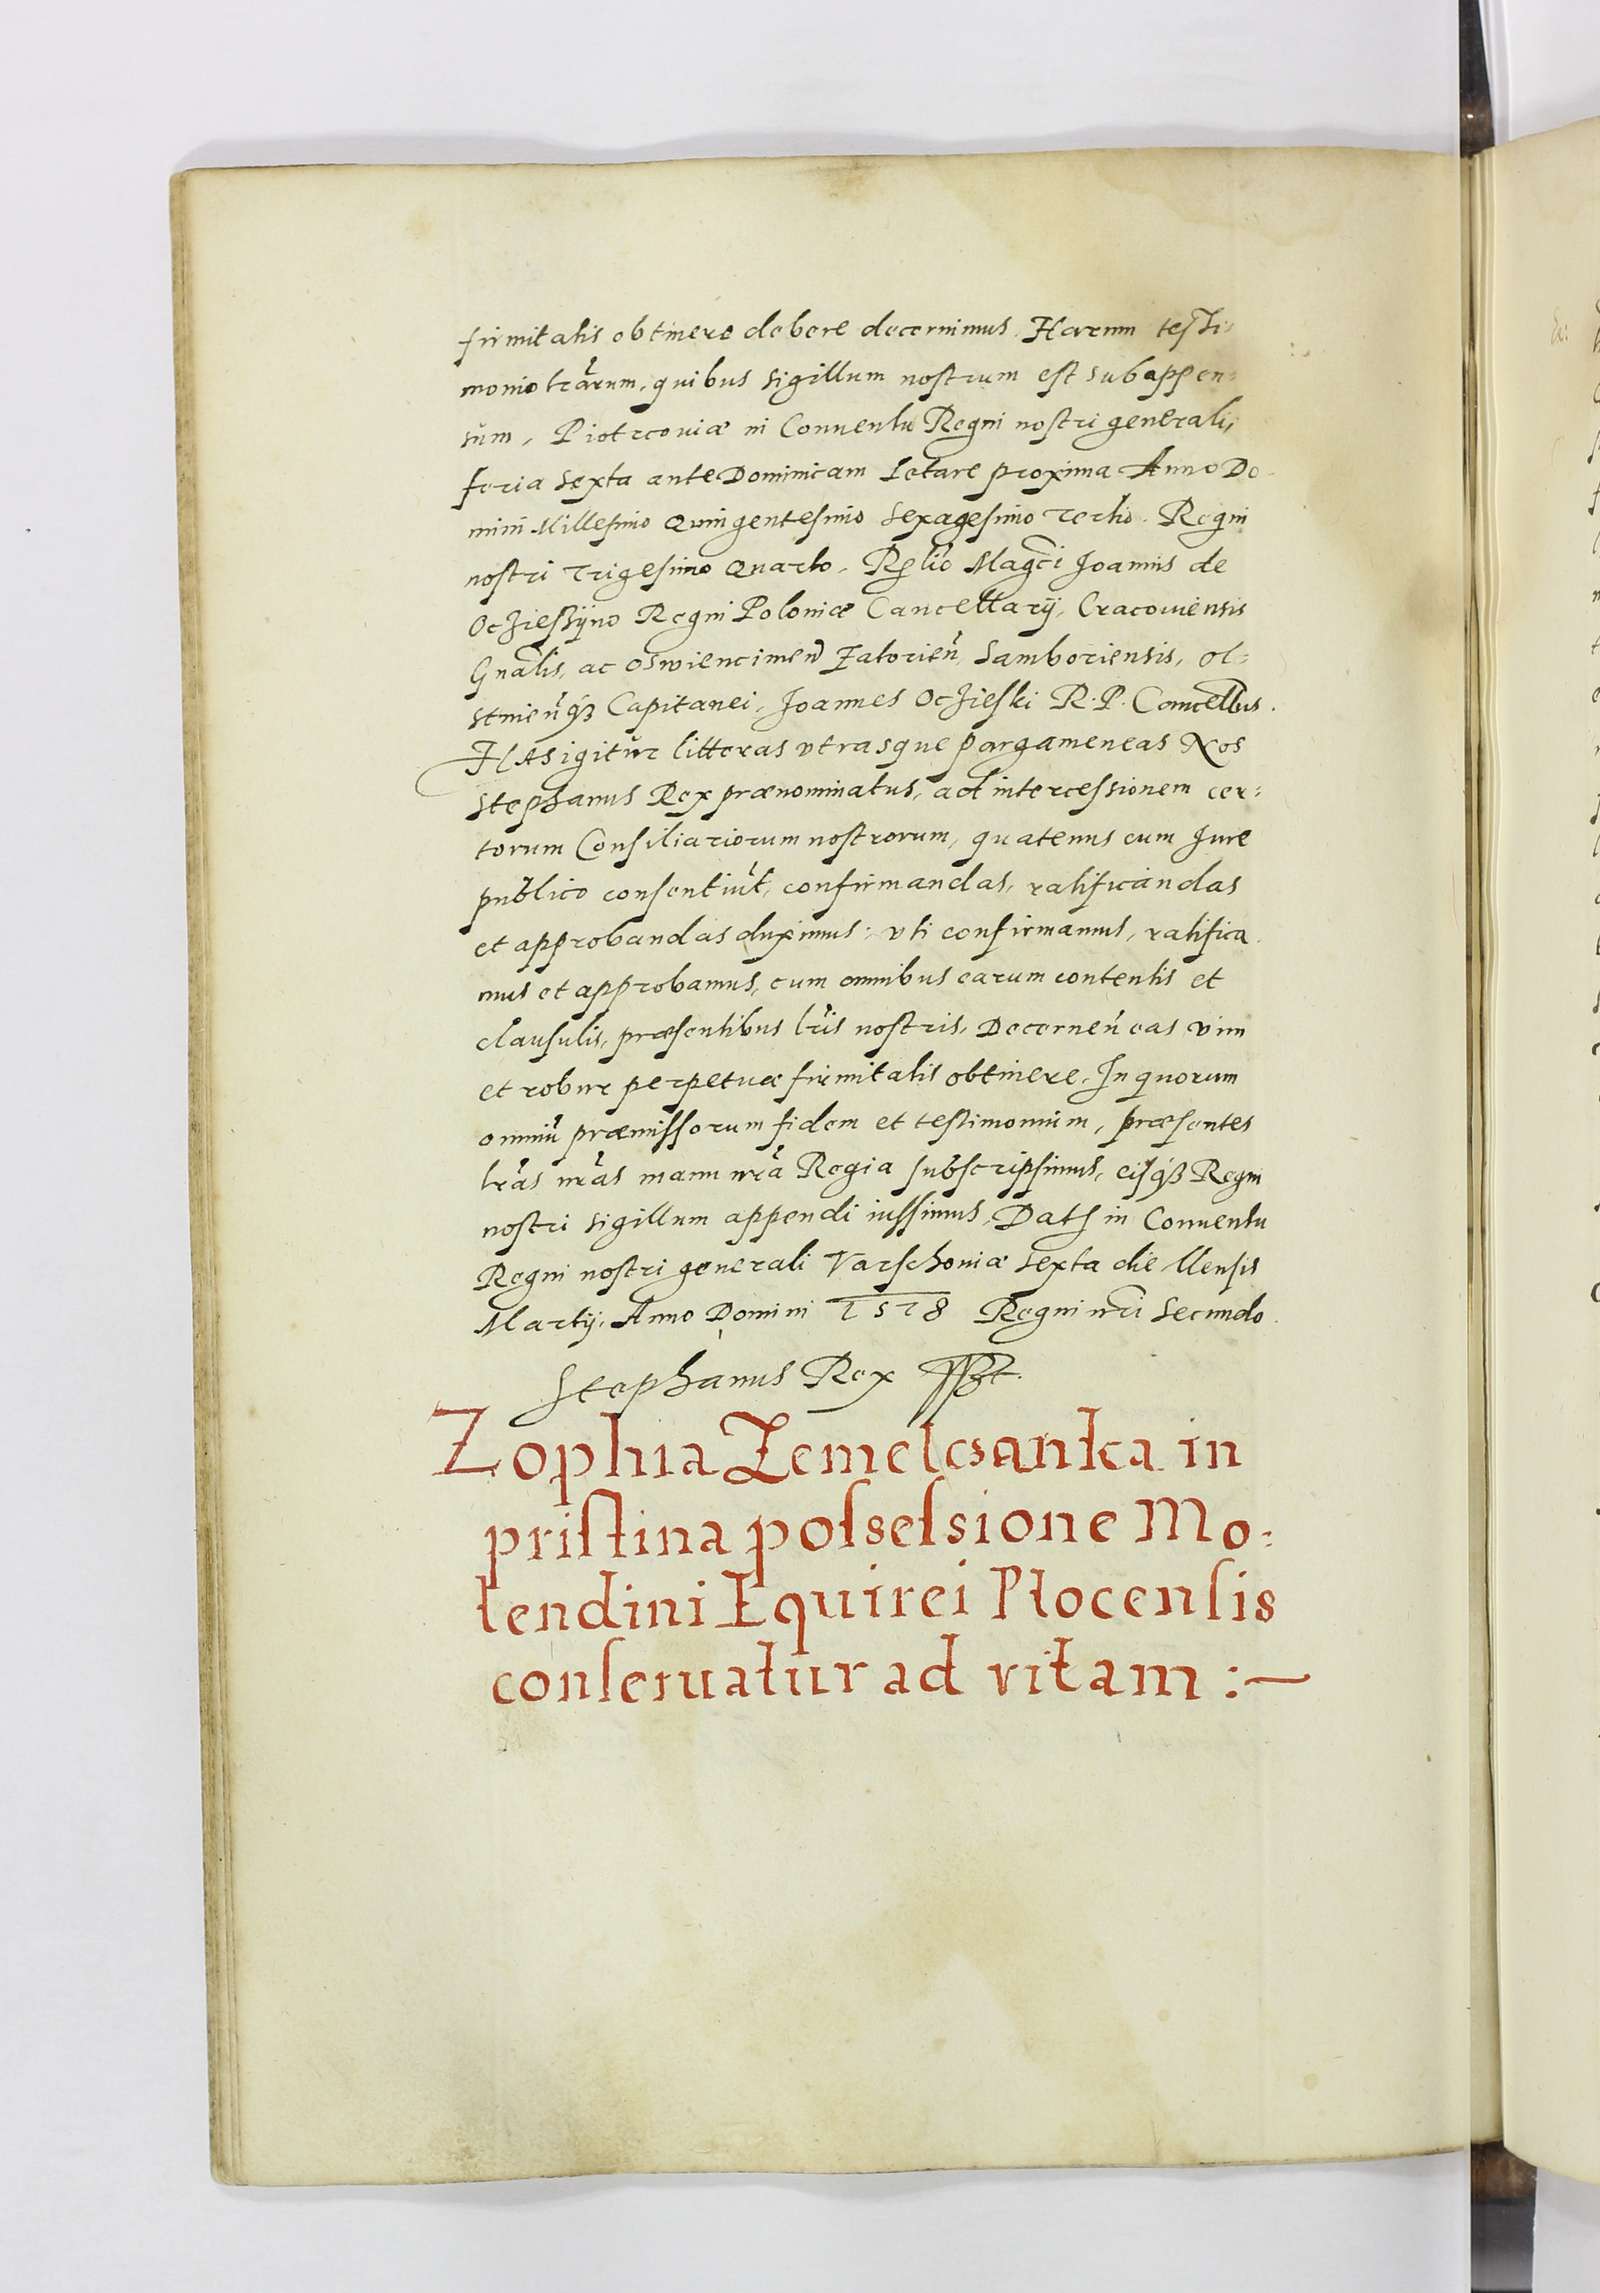 firmitatis obtinere debere decernimus. Harum testi-
monio lr̃arum, quibus sigillum nostrum est subappen=
sum, Piotrcouiæ in Conuentu Regni nostri generali,
feria sexta ante Dominicam Letare proxima Anno Do
mini Millesimo Quingentesimo Sexagesimo Tertio. Regni
nostri Trigesimo Quarto. Relio Magci Joannis de
Oczieszÿno Regni Poloniæ Cancellarÿ, Cracouiensis
Gnalis, ac Oswiencimeñ Zatorieñ, Samboriensis, Ol=
stineñq3 Capitanei, Joannes Oczieski R. P. Cancellus.
Has igitur litteras vtrasque pargameneas Nos
Stephanus Rex prænominatus, ad intercessionem cer=
torum Consiliariorum nostrorum, quatenus cum Jure
publico consentiũt, confirmandas, ratificandas
et approbandas duximus: vti confirmamus, ratifica
mus et approbamus, cum omnibus earum contentis et
clausulis, præsentibus lr̃is nostris, Decerneñ eas vim
et robur perpetuæ firmitatis obtinere. In quorum
omniũ præmissorum fidem et testimonium, præsentes
lr̃as nr̃as manu nr̃a Regia subscripsimus, eisq3 Regni
nostri sigillum appendi iussimus, Dat in Conuentu
Regni nostri generali Varschouiæ sexta die Mensis
Martÿ, Anno Domini 1578 Regni nr̃i Secundo.
Stephanus Rex sst.
Zophia Zemelcsanka in
pristina possessione Mo=
lendini Equirei Plocensis
conseruatur ad vitam :~